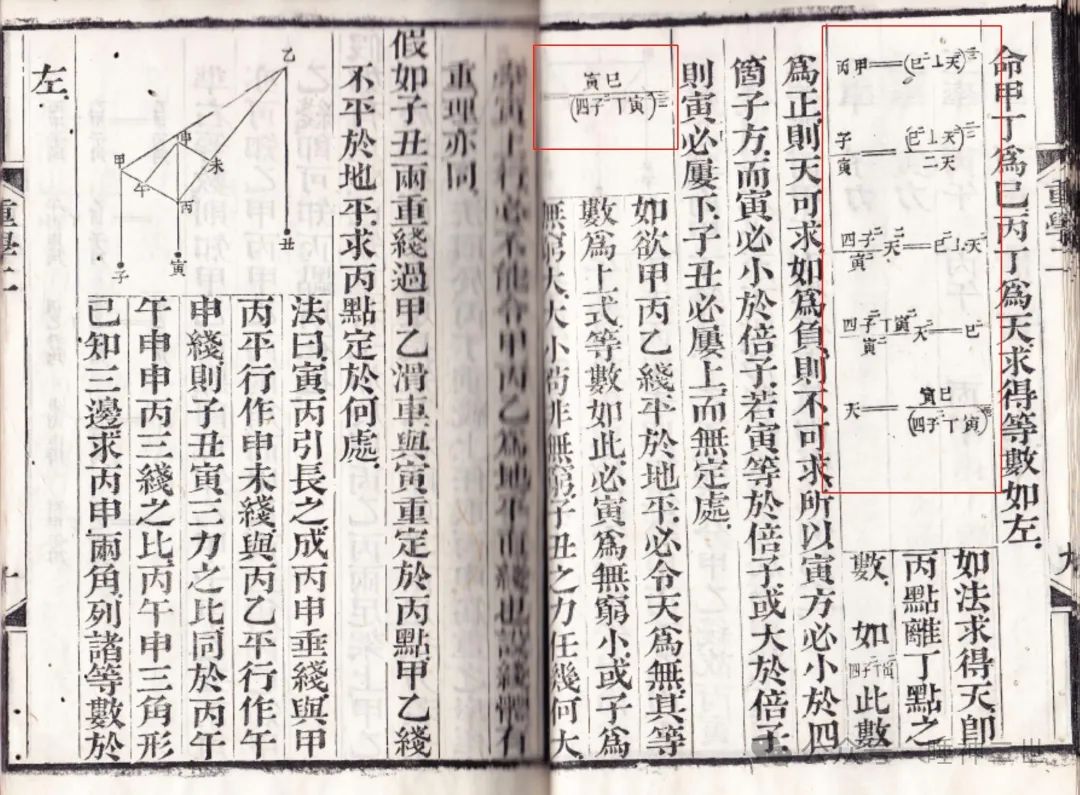 命甲丁爲巳丙丁爲天求得等數如左.
丙甲=(巳二⊥天二)二三
子/寅=(巳二⊥天二)二三/二天
四子二/寅二 天二=巳二⊥天二
四子二丅寅二/寅二 天二=巳二
天=寅巳/(四子二丅寅二)二三
如法求得天卽
丙點離丁點之
數.如四子二丅寅二此數
爲正則天可求如爲負則不可求所以寅方必小於四
箇子方而寅必小於倍子若寅等於倍子或大於倍子
則寅必屢下子丑必屢上而無定處
寅巳/(四子二丅寅二)二三
如欲甲丙乙綫平於地平必令天爲無其等
數爲上式等數如此必寅爲無窮小或子爲
無窮大大小苟非無窮子丑之力任幾何大
牽寅上行必不能令甲丙乙爲地平直綫也設綫體有
重理亦同.
重學二
九
假如子丑兩重綫過甲乙滑車與寅重定於丙點甲乙綫
不平於地平求丙點定於何處.
乙
申
甲
未
午
丙
丑
寅
子
法曰寅丙引長之成丙申垂綫與甲
丙平行作申未綫與丙乙平行作午
申綫則子丑寅三力之比同於丙午
午申申丙三綫之比丙午申三角形
已知三邊求丙申兩角列諸等數於
左.
重學二
十